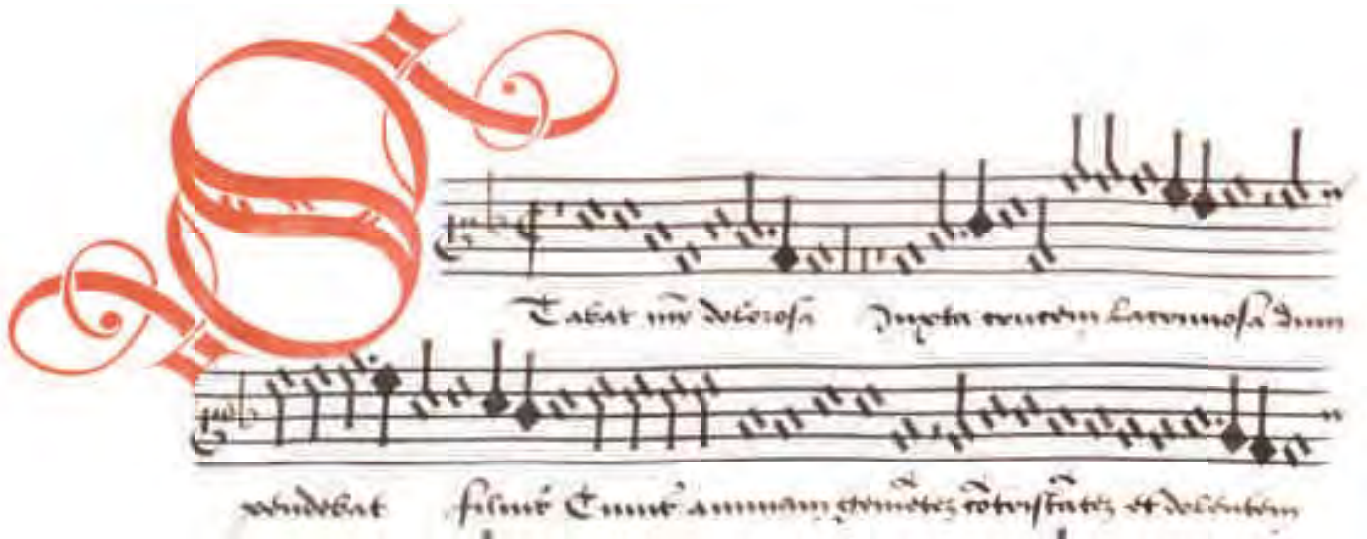 Stabat mr̄ dolorosa Juxta crucem lacrimosa dum
pendebat filius Cuius animam gemētez cōtristātez et dolentem